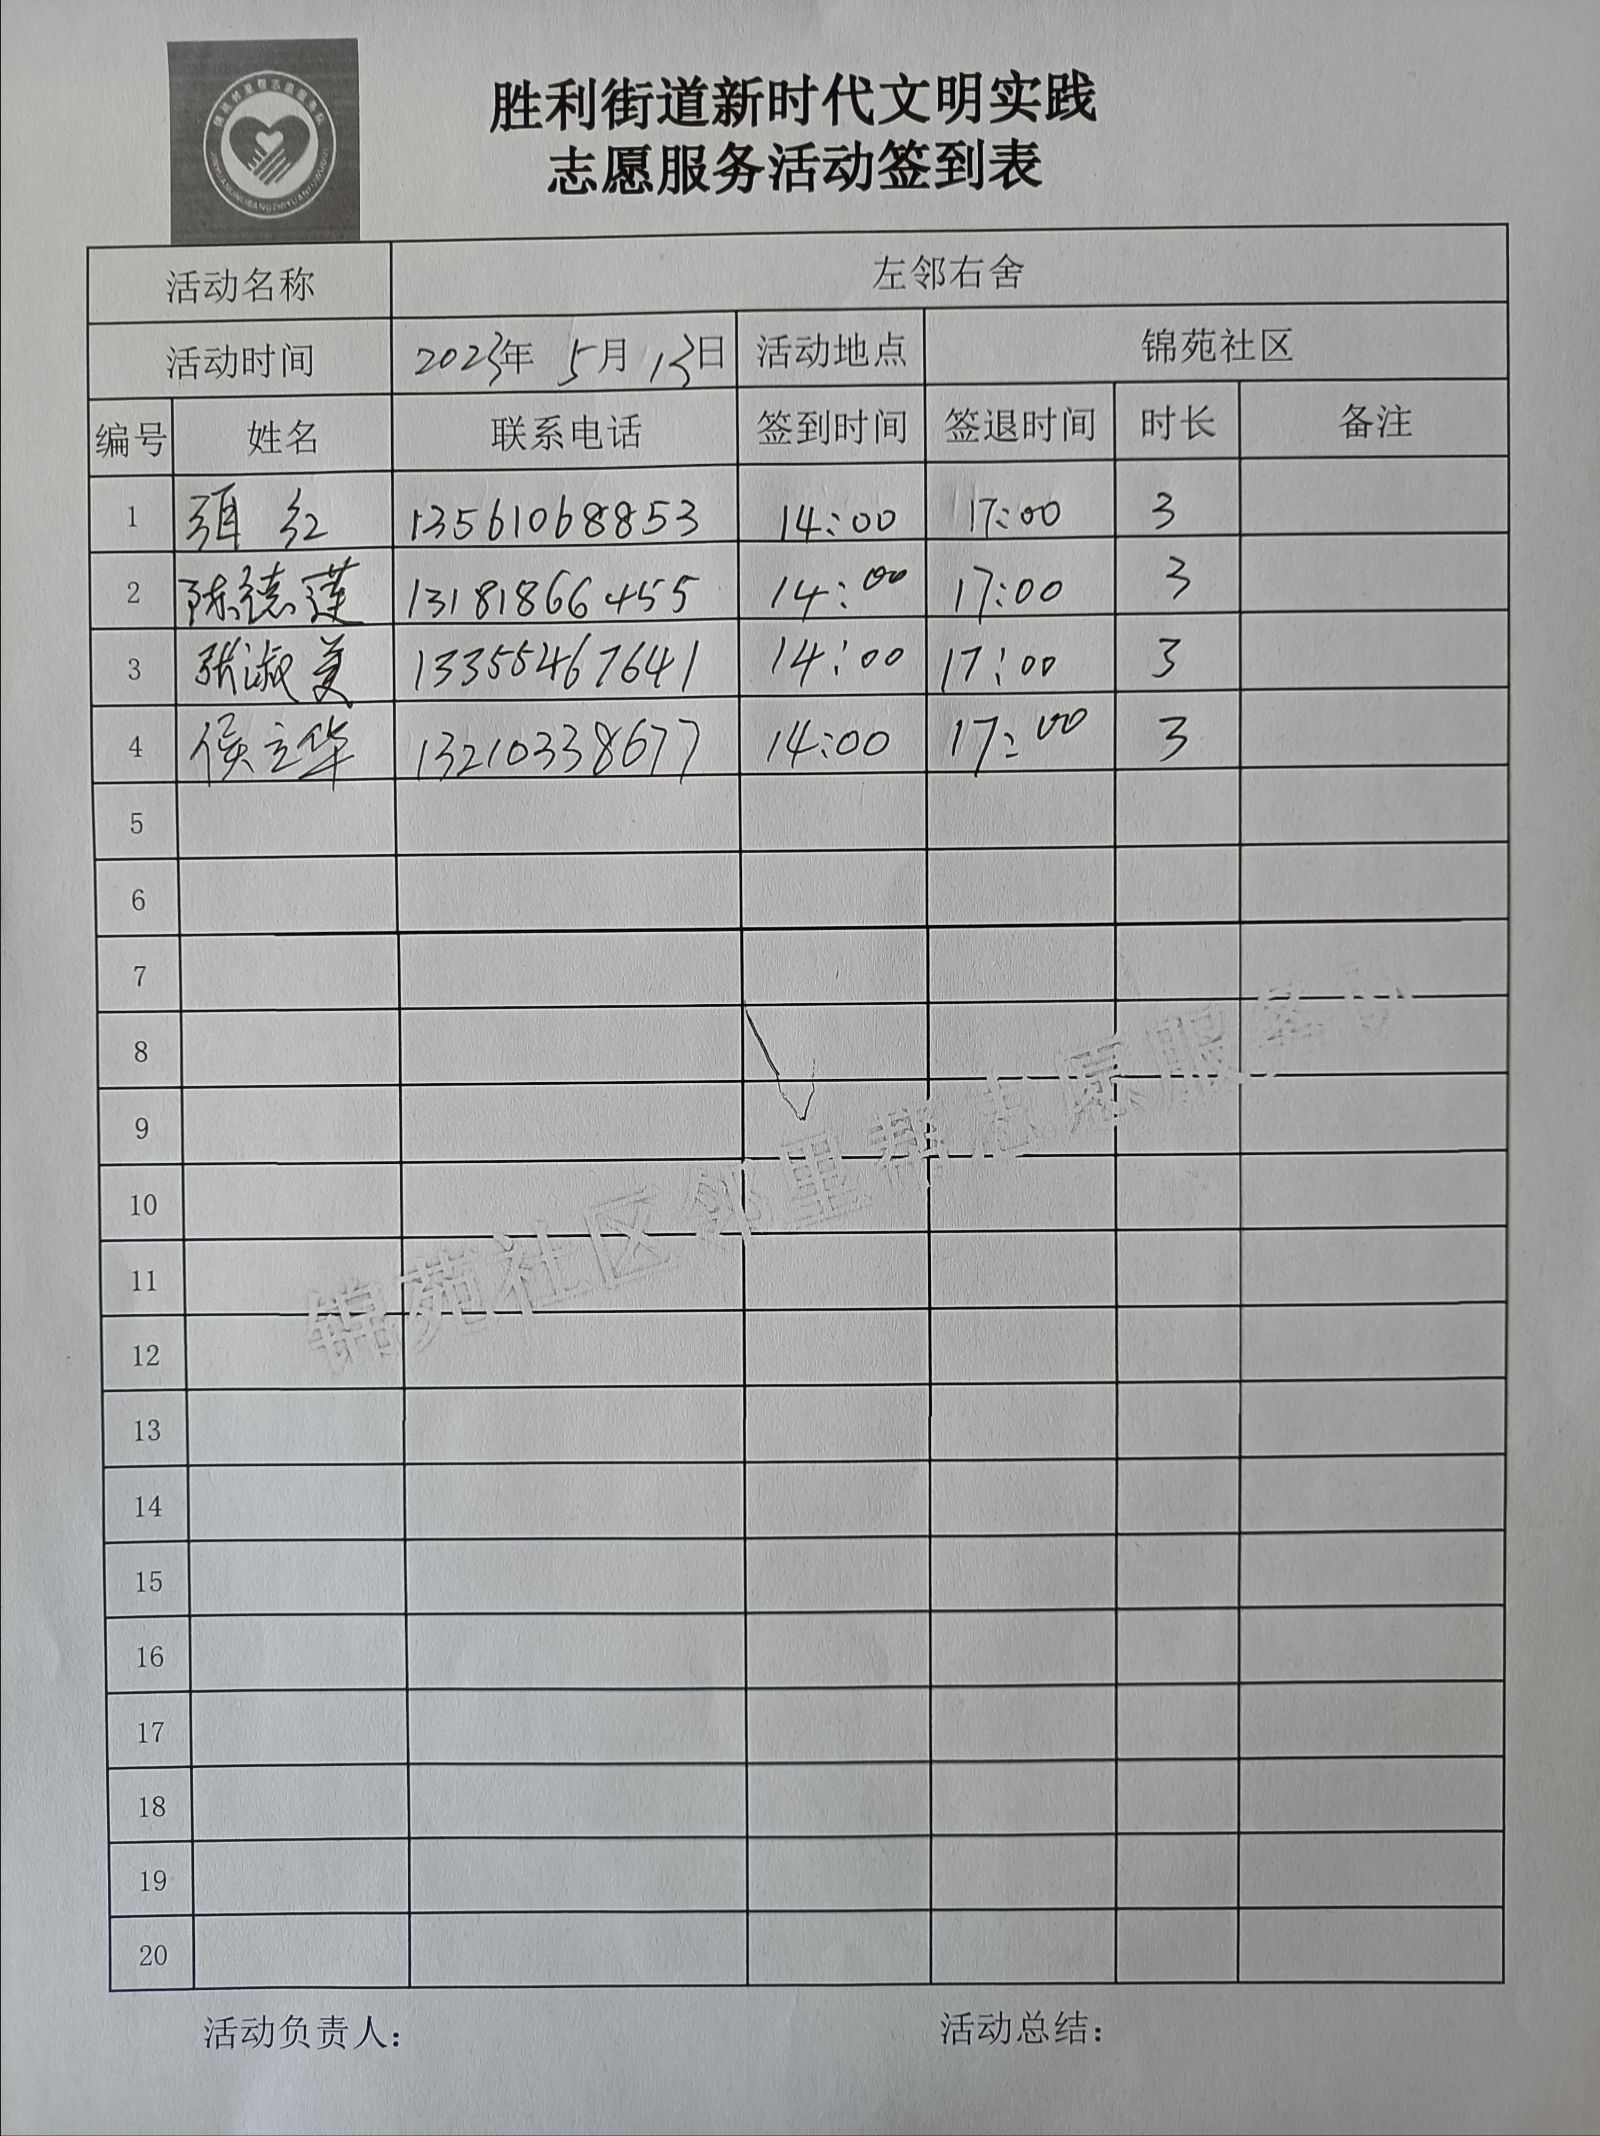 胜利街道新时代文明实践
志愿服务活动签到表
活动名称 左邻右舍
活动时间 2023年 5月 13日 活动地点 锦苑社区
编号 姓名 联系电话 签到时间 签退时间 时长 备注
1 红 13561068853 14:00 17:00 3
2 陈德莲 13181866455 14:00 17:00 3
3 张淑美 13355467641 14:00 17:00 3
4 侯立华 13210338677 14:00 17:00 3
5
6
7
8
9
10
11
12
13
14
15
16
17
18
19
20
锦苑社区邻里帮志愿服务队
活动负责人:
活动总结: